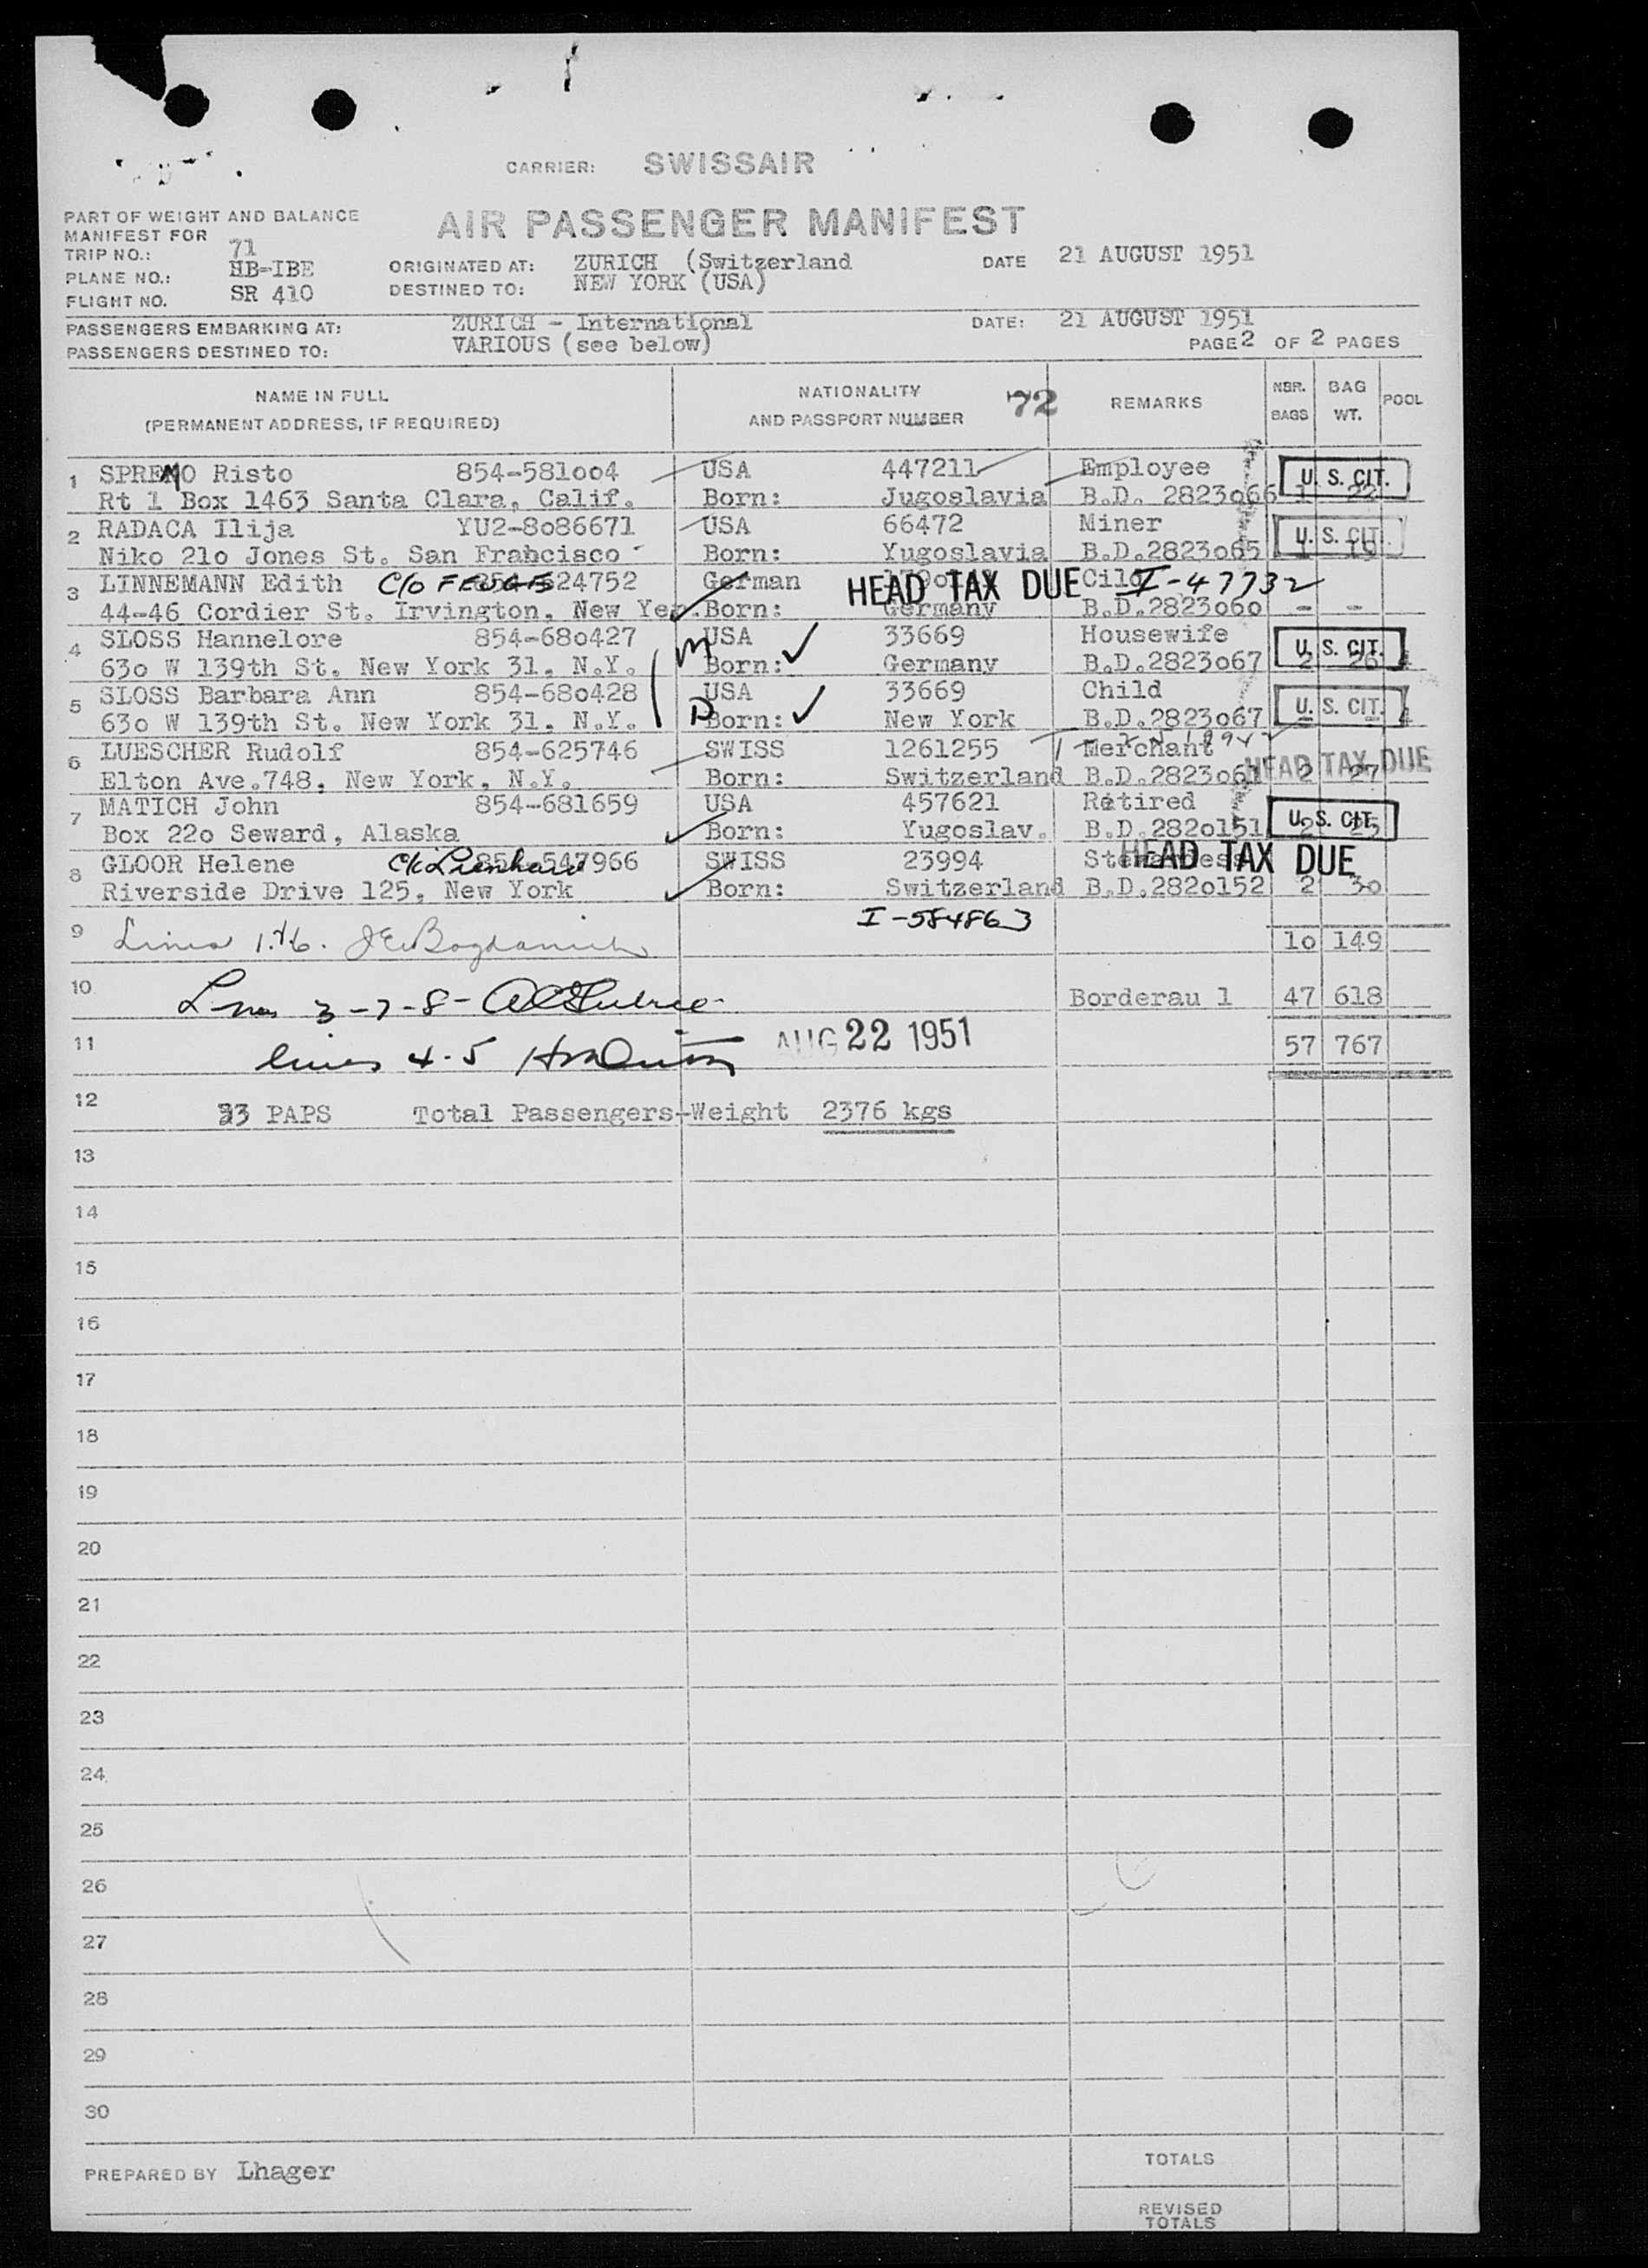 CARRIER: SWISSAIR
PART OF WEIGHT AND BALANCE
MANIFEST FOR
AIR PASSENGER MANIFEST
TRIP NO.: 71
PLANE NO.: HB-IBE
FLIGHT NO. SR 410
ORIGINATED AT: ZURICH (Switzerland
DESTINED TO: NEW YORK (USA)
DATE 21 AUGUST 1951
PASSENGERS EMBARKING AT: ZURICH - International DATE: 21 AUGUST 1951
PASSENGERS DESTINED TO: VARIOUS (see below) PAGE 2 OF 2 PAGES
NAME IN FULL
(PERMANENT ADDRESS, IF REQUIRED)
NATIONALITY
AND PASSPORT NUMBER
72
REMARKS
NBR.
BAGS
BAG
WT.
POOL
1 SPREMO Risto 854-581oo4 USA 447211 Employee U. S. CIT.
Rt 1 Box 1463 Santa Clara, Calif. Born: Jugoslavia B.D. 2823o66 1 22
2 RADACA Ilija YU2-8o86671 USA 66472 Miner U. S. CIT.
Niko 21o Jones St. San Frahcisco Born: Yugoslavia B.D.2823o65 1
3 LINNEMANN Edith C/o 24752 German HEAD TAX DUE I-47732
44-46 Cordier St. Irvington, New Born: Germany B.D.2823o6o - -
4 SLOSS Hannelore 854-68o427 M USA 33669 Housewife U. S. CIT.
63o W 139th St. New York 31, N.Y. Born: Germany B.D.2823o67 2 26
5 SLOSS Barbara Ann 854-68o428 D USA 33669 Child U. S. CIT.
63o W 139th St. New York 31, N.Y. Born: New York B.D.2823o67 - -
6 LUESCHER Rudolf 854-625746 SWISS 1261255 Merchant
Elton Ave.748, New York, N.Y. Born: Switzerland B.D.2823o61 2 27 HEAD TAX DUE
7 MATICH John 854-681659 USA 457621 Retired
Box 22o Seward, Alaska Born: Yugoslav. B.D.282o151 2 25 U. S. CIT.
8 GLOOR Helene C/o Lienhard 854-547966 SWISS 23994 Stewardess HEAD TAX DUE
Riverside Drive 125, New York Born: Switzerland B.D.282o152 2 3o
I-584863
9 Lines 1.2.6. 1o 149
10 Lines 3-7-8- Borderau 1 47 618
11 lines 4-5 AUG 22 1951 57 767
12 33 PAPS Total Passengers-Weight 2376 kgs
13
14
15
16
17
18
19
20
21
22
23
24
25
26
27
28
29
30
PREPARED BY Lhager
TOTALS
REVISED
TOTALS